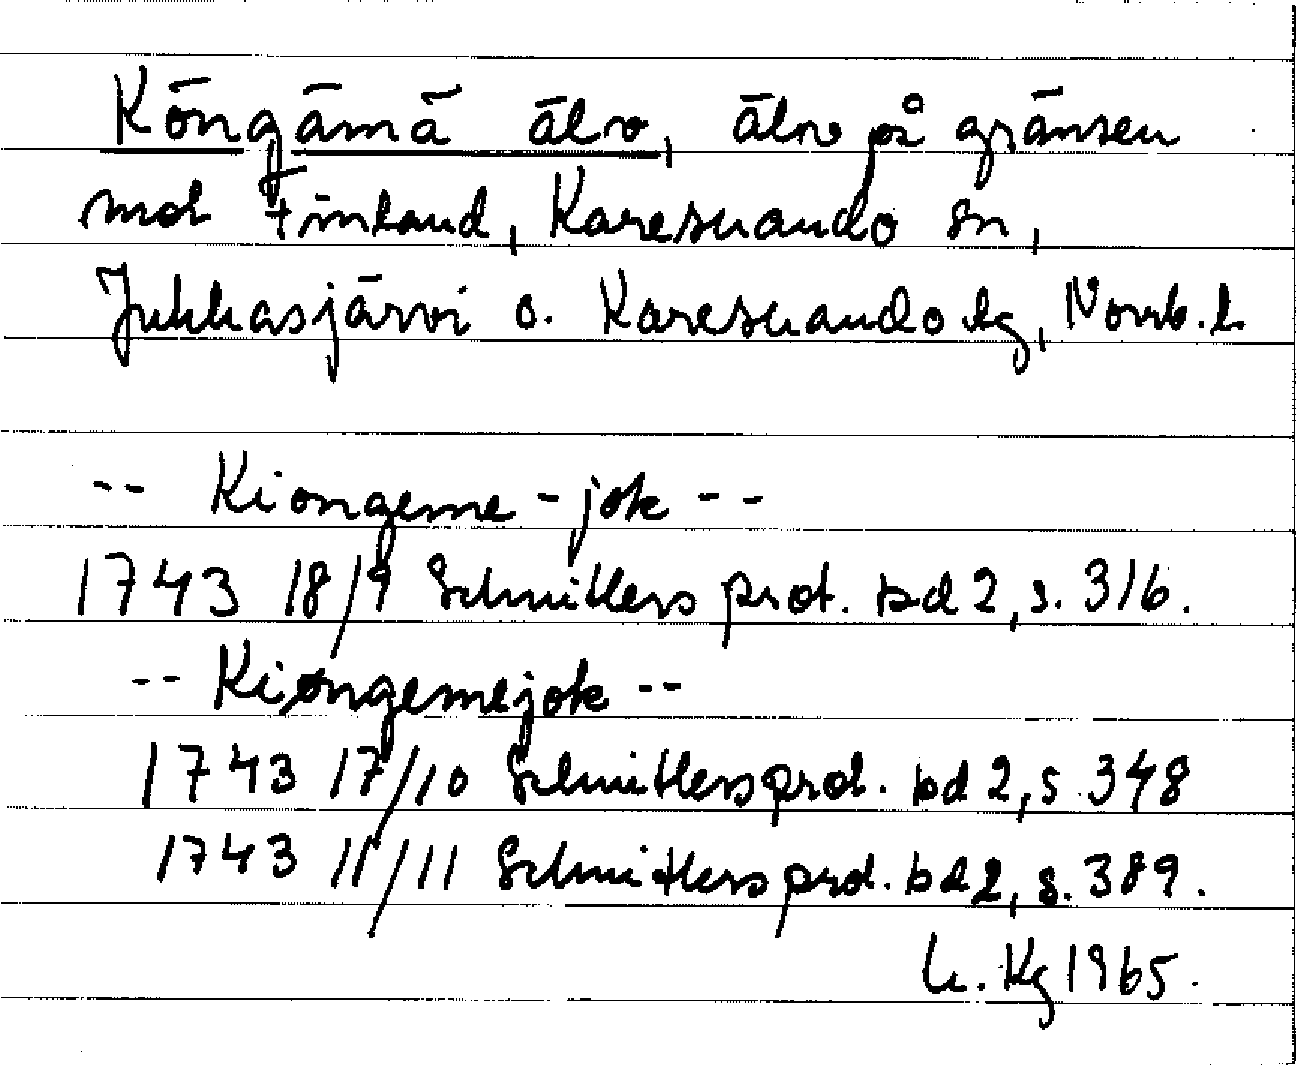 Köngämä älv, älv på gränsen
mot Finland, Karesuando sn,
Jukkasjärvi o. Karesuando lg, Norrb. l.
-- Kiongeme-jok --
1743 18/9 Schnitlers prot. bd 2, s. 316.
-- Kiøngemejok --
1743 17/10 Schnitlers prot. bd 2, s. 348
1743 11/11 Schnitlers prot. bd 2, s. 389.
Kg 1965.